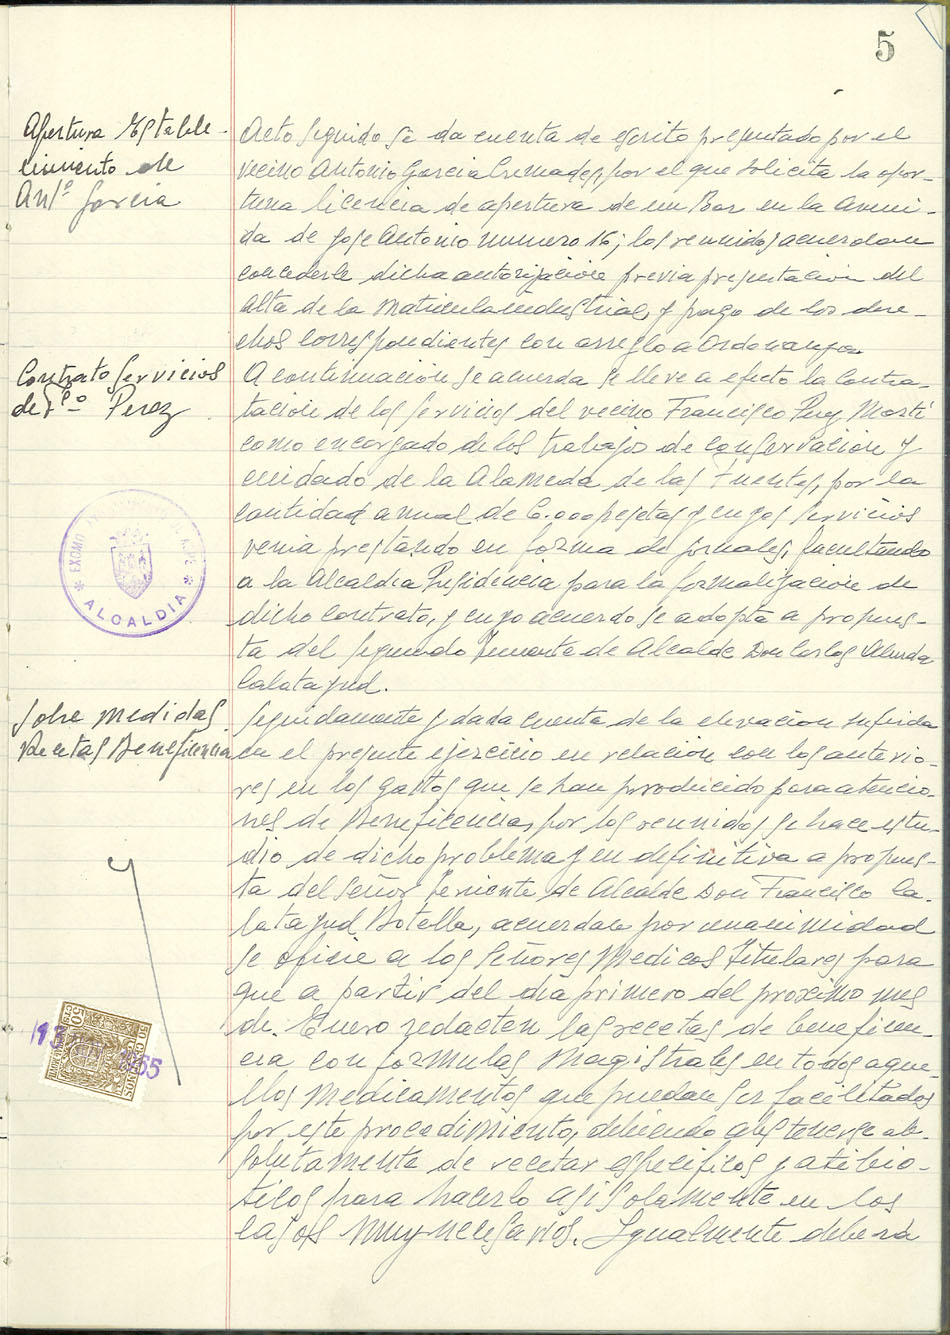 5
Apertura Estable-
cimiento de
Antº Garcia
Acto seguido se da cuenta de escrito presentado por el
vecino Antonio Garcia Cremades, por el que solicita la opor-
tuna licencia de apertura de un Bar en la Aveni-
da de Jose Antonio numero 16; los reunidos acuerdan
concederle dicha autorizacion previa presentacion del
alta de la Matricula industrial, y pago de los dere-
chos correspondientes con arreglo a Ordenanza.
Contrato Servicios
de Fcº Perez
A continuacion se acuerda se lleve a efecto la contra-
tacion de los servicios del vecino Francisco Perez Marti
como encargado de los trabajos de conservacion y
cuidado de la Alameda de las Fuentes, por la
cantidad anual de 6.000 pesetas y cuyos servicios
venia prestando en forma de jornales, facultando
a la Alcaldia Presidencia para la formalizacion de
dicho contrato, y cuyo acuerdo se adopta a propues-
ta del segundo Teniente de Alcalde Don Carlos
Calatayud.
EXCMO
ALCALDIA
Sobre medidas
Recetas Beneficencia
Seguidamente y dada cuenta de la elevacion sufrida
en el presente ejercicio en relacion con los anterio-
res en los gastos que se han producido para atencio-
nes de Beneficencia, por los reunidos se hace estu-
dio de dicho problema y en definitiva a propues-
ta del Señor Teniente de Alcalde Don Francisco Ca-
latayud Botella, acuerdan por unanimidad
se oficie a los Señores Medicos Titulares para
que a partir del dia primero del proximo mes
de Enero redacten las recetas de beneficen-
cia con formulas magistrales en todos aque-
llos medicamentos que puedan ser facilitados
por este procedimiento, debiendo abstenerse ab-
solutamente de recetar especificos y atibio-
ticos para hacerlo asi solamente en los
casos muy necesarios. Igualmente deberá